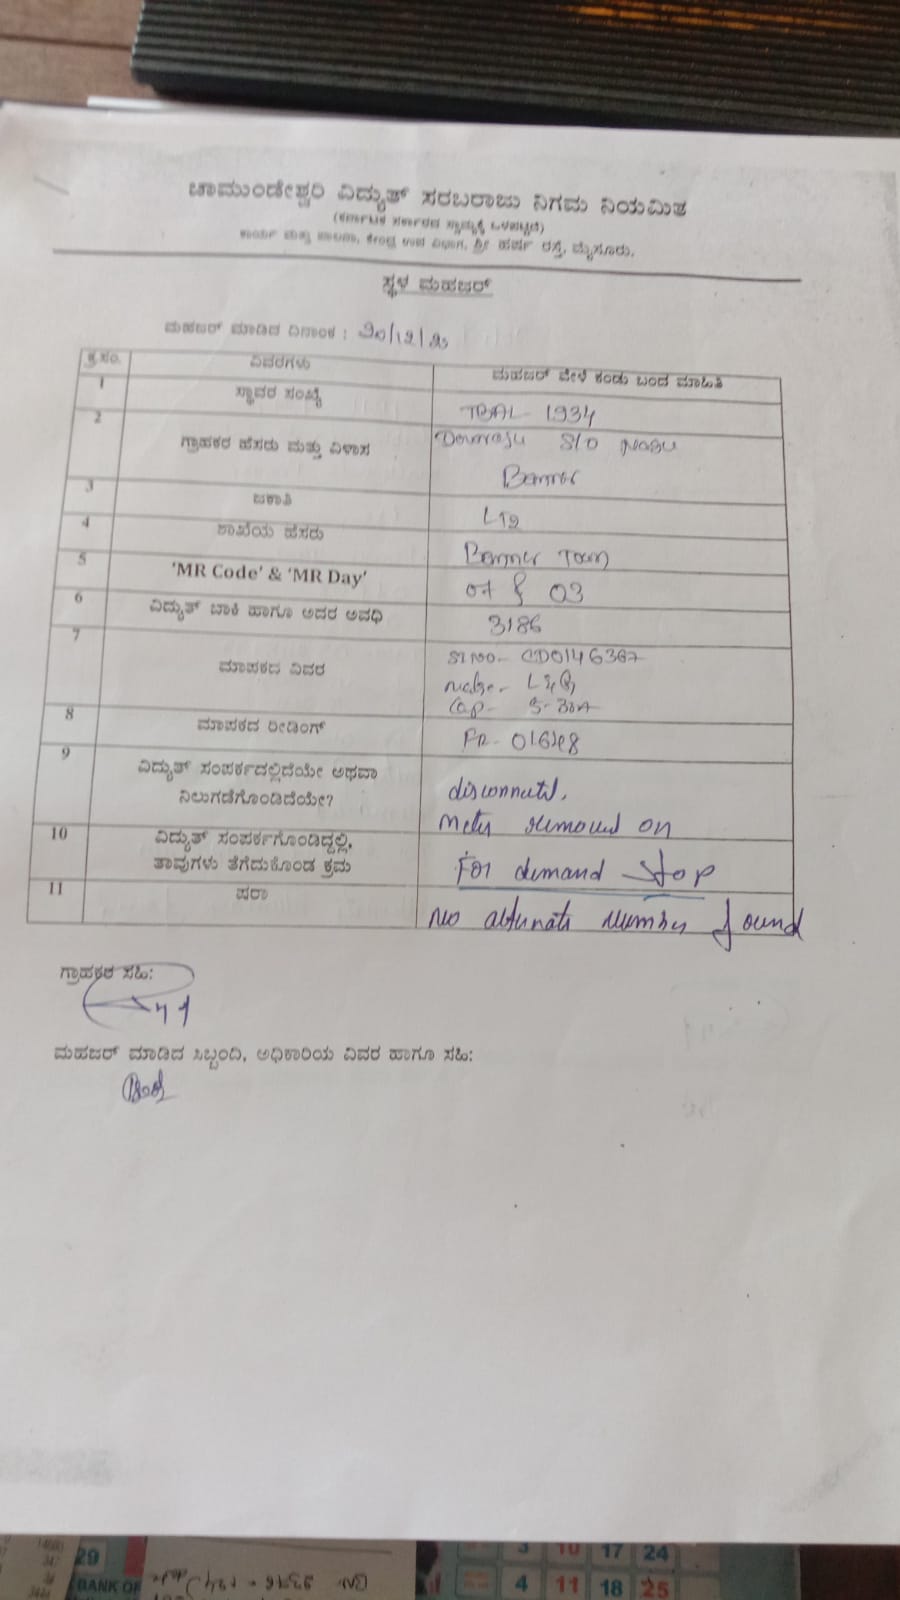 ಚಾಮುಂಡೇಶ್ವರಿ ವಿದ್ಯುತ್ ಸರಬರಾಜು ನಿಗಮ ನಿಯಮಿತ
(ಕರ್ನಾಟಕ ಸರ್ಕಾರದ ಸ್ವಾಮ್ಯಕ್ಕೆ ಒಳಪಟ್ಟಿದೆ)
ಕಾರ್ಯ ಮತ್ತು ಪಾಲನಾ, ಕೇಂದ್ರ ಉಪ ವಿಭಾಗ, ಶ್ರೀ ಹರ್ಷ ರಸ್ತೆ, ಮೈಸೂರು.
ಸ್ಥಳ ಮಹಜರ್
ಮಹಜರ್ ಮಾಡಿದ ದಿನಾಂಕ :
ಕ್ರ.ಸಂ. ವಿವರಗಳು ಮಹಜರ್ ವೇಳೆ ಕಂಡು ಬಂದ ಮಾಹಿತಿ
1 ಸ್ಥಾವರ ಸಂಖ್ಯೆ TBAL- 1934
2 ಗ್ರಾಹಕರ ಹೆಸರು ಮತ್ತು ವಿಳಾಸ S/O
3 ಜಕಾತಿ LT2
4 ಶಾಖೆಯ ಹೆಸರು
5 'MR Code' & 'MR Day' 03
6 ವಿದ್ಯುತ್ ಬಾಕಿ ಹಾಗೂ ಅದರ ಅವಧಿ 3186
7 ಮಾಪಕದ ವಿವರ Sl No- CD0146367
L&G
Cap- 5-30A
8 ಮಾಪಕದ ರೀಡಿಂಗ್ FR-
9 ವಿದ್ಯುತ್ ಸಂಪರ್ಕದಲ್ಲಿದೆಯೇ ಅಥವಾ
ನಿಲುಗಡೆಗೊಂಡಿದೆಯೇ? disconnected.
10 ವಿದ್ಯುತ್ ಸಂಪರ್ಕಗೊಂಡಿದ್ದಲ್ಲಿ, Meter removed on
ತಾವುಗಳು ತೆಗೆದುಕೊಂಡ ಕ್ರಮ For demand stop
11 ಷರಾ No alternate number found
ಗ್ರಾಹಕರ ಸಹಿ:
ಮಹಜರ್ ಮಾಡಿದ ಸಿಬ್ಬಂದಿ, ಅಧಿಕಾರಿಯ ವಿವರ ಹಾಗೂ ಸಹಿ:
29
BANK OF
3 10 17 24
4 11 18 25